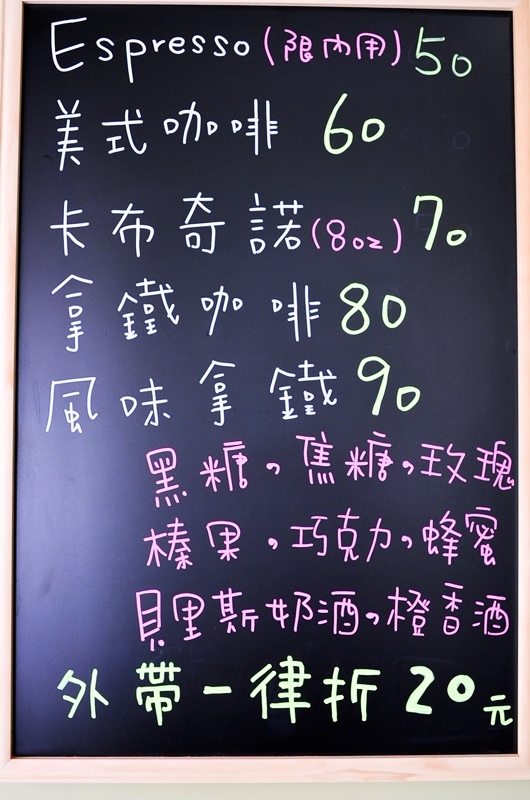 Espresso(限內用) 50
美式咖啡 60
卡布奇諾(8oz) 70
拿鐵咖啡 80
風味拿鐵 90
黑糖。焦糖。玫瑰
榛果。巧克力。蜂蜜
貝里斯奶酒。橙香酒
外帶一律折20元